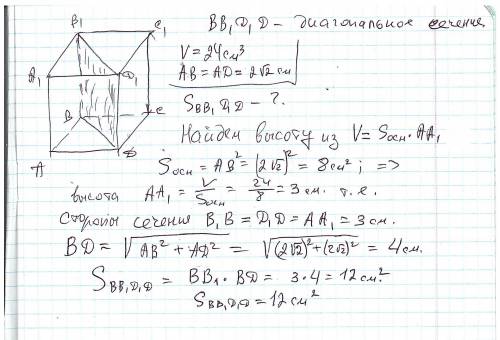 B₁ C₁
A₁ D₁
B C
A D
BB₁D₁D – диагональное сечение
V = 24 см³
AB = AD = 2√2 см
S_BB₁D₁D – ?
Найдем высоту из V = Sосн · AA₁
Sосн = AB² = (2√2)² = 8 см² ; =>
высота AA₁ = V/Sосн = 24/8 = 3 см. т.е.
стороны сечения B₁B = D₁D = AA₁ = 3 см.
BD = √(AB² + AD²) = √((2√2)² + (2√2)²) = 4 см.
S_BB₁D₁D = BB₁ · BD = 3·4 = 12 см².
S_BB₁D₁D = 12 см²